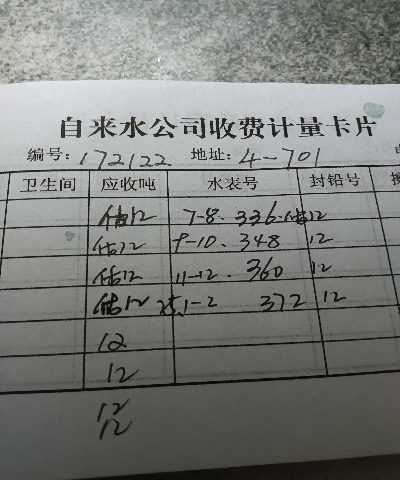 自来水公司收费计量卡片
编号: 172122 地址: 4-701
卫生间 应收吨 水装号 封铅号
估12 7-8. 336 12
估12 9-10. 348 12
估12 11-12. 360 12
估12 1-2 372 12
12
12
12
12